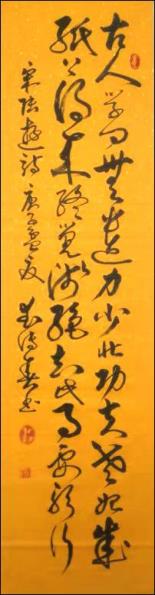 古人学问无遗力少壮功夫老始成
纸上得来终觉浅绝知此事要躬行
宋陆游诗 庚子孟夏
书